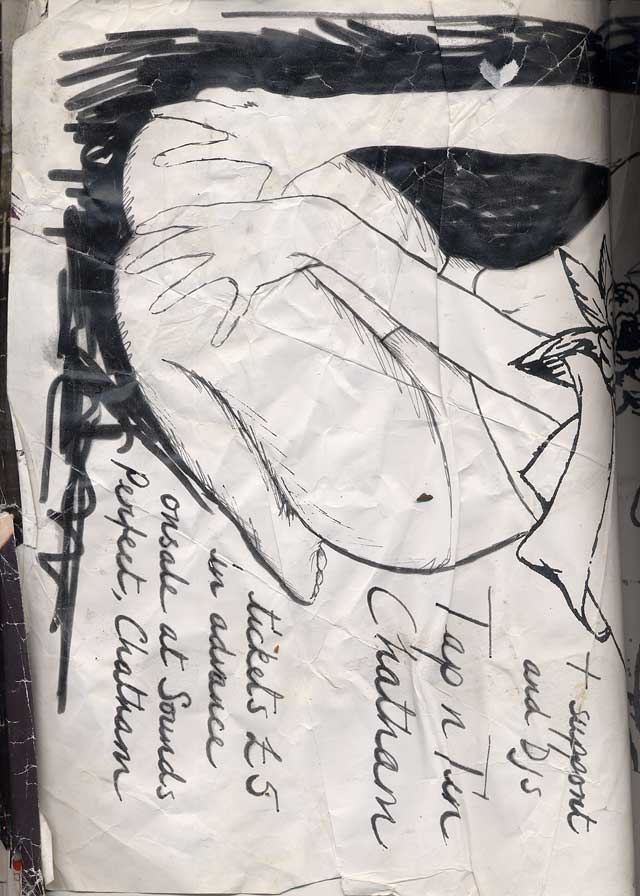 + support
and DJs
Tap n Tin
Chatham
tickets £5
in advance
onsale at Sounds
Perfect, Chatham